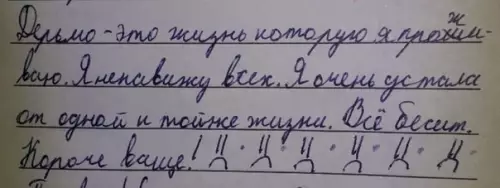 Дерьмо - это жизнь которую я прожи-
ваю. Я ненавижу всех. Я очень устала
от одной и тойже жизни. Всё бесит.
Короче ваще!